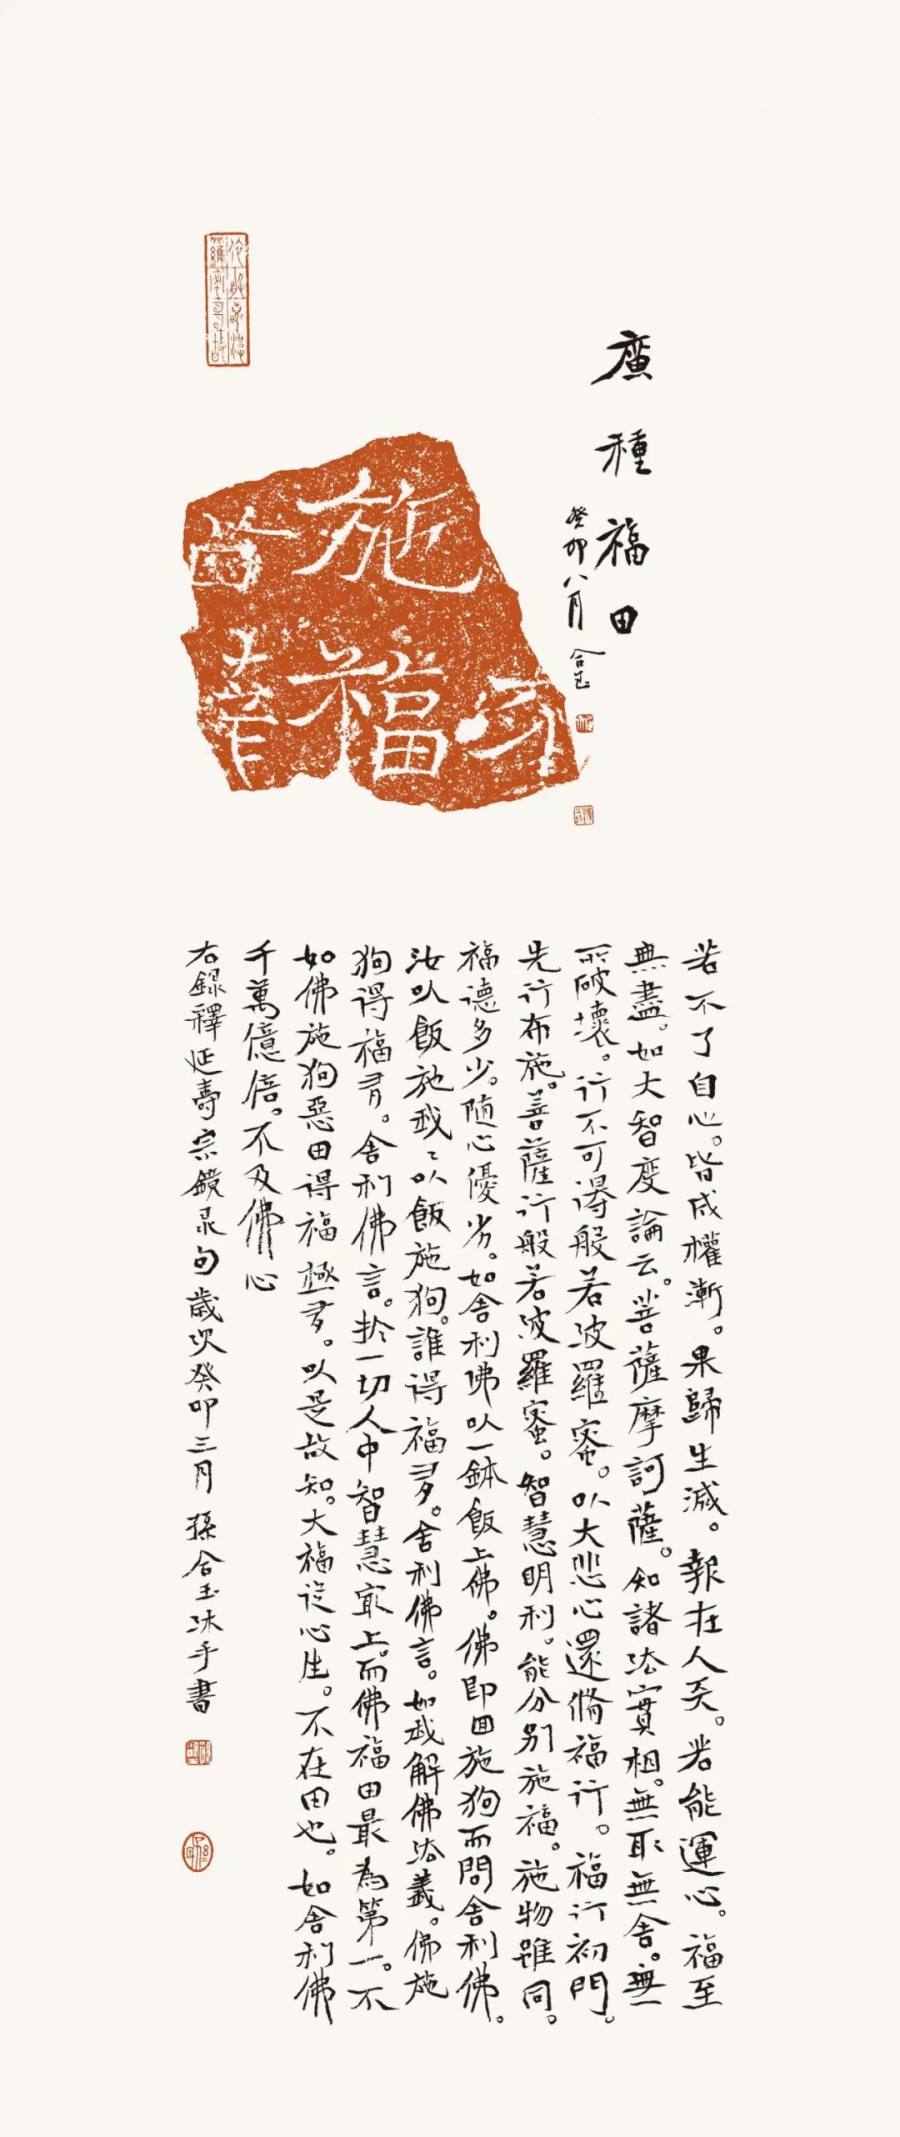 廣種福田
癸卯八月 合玉
施福
若不了自心。皆成權漸。果歸生滅。報在人天。若能運心。福至
無盡。如大智度論云。菩薩摩訶薩。知諸法實相。無取無舍。無
所破壞。行不可得般若波羅蜜。以大悲心還脩福行。福行初門。
先行布施。菩薩行般若波羅蜜。智慧明利。能分別施福。施物雖同。
福德多少。随心優劣。如舍利佛以一鉢飯上佛。佛即回施狗而問舍利佛。
汝以飯施我〻以飯施狗。誰得福多。舍利佛言。如我解佛法義。佛施
狗得福多。舍利佛言。於一切人中智慧冣上。而佛福田最為第一。不
如佛施狗惡田得福極多。以是故知。大福從心生。不在田也。如舍利佛
千萬億倍。不及佛心
右録釋延壽宗鏡录句歲次癸卯三月 孫合玉沐手書